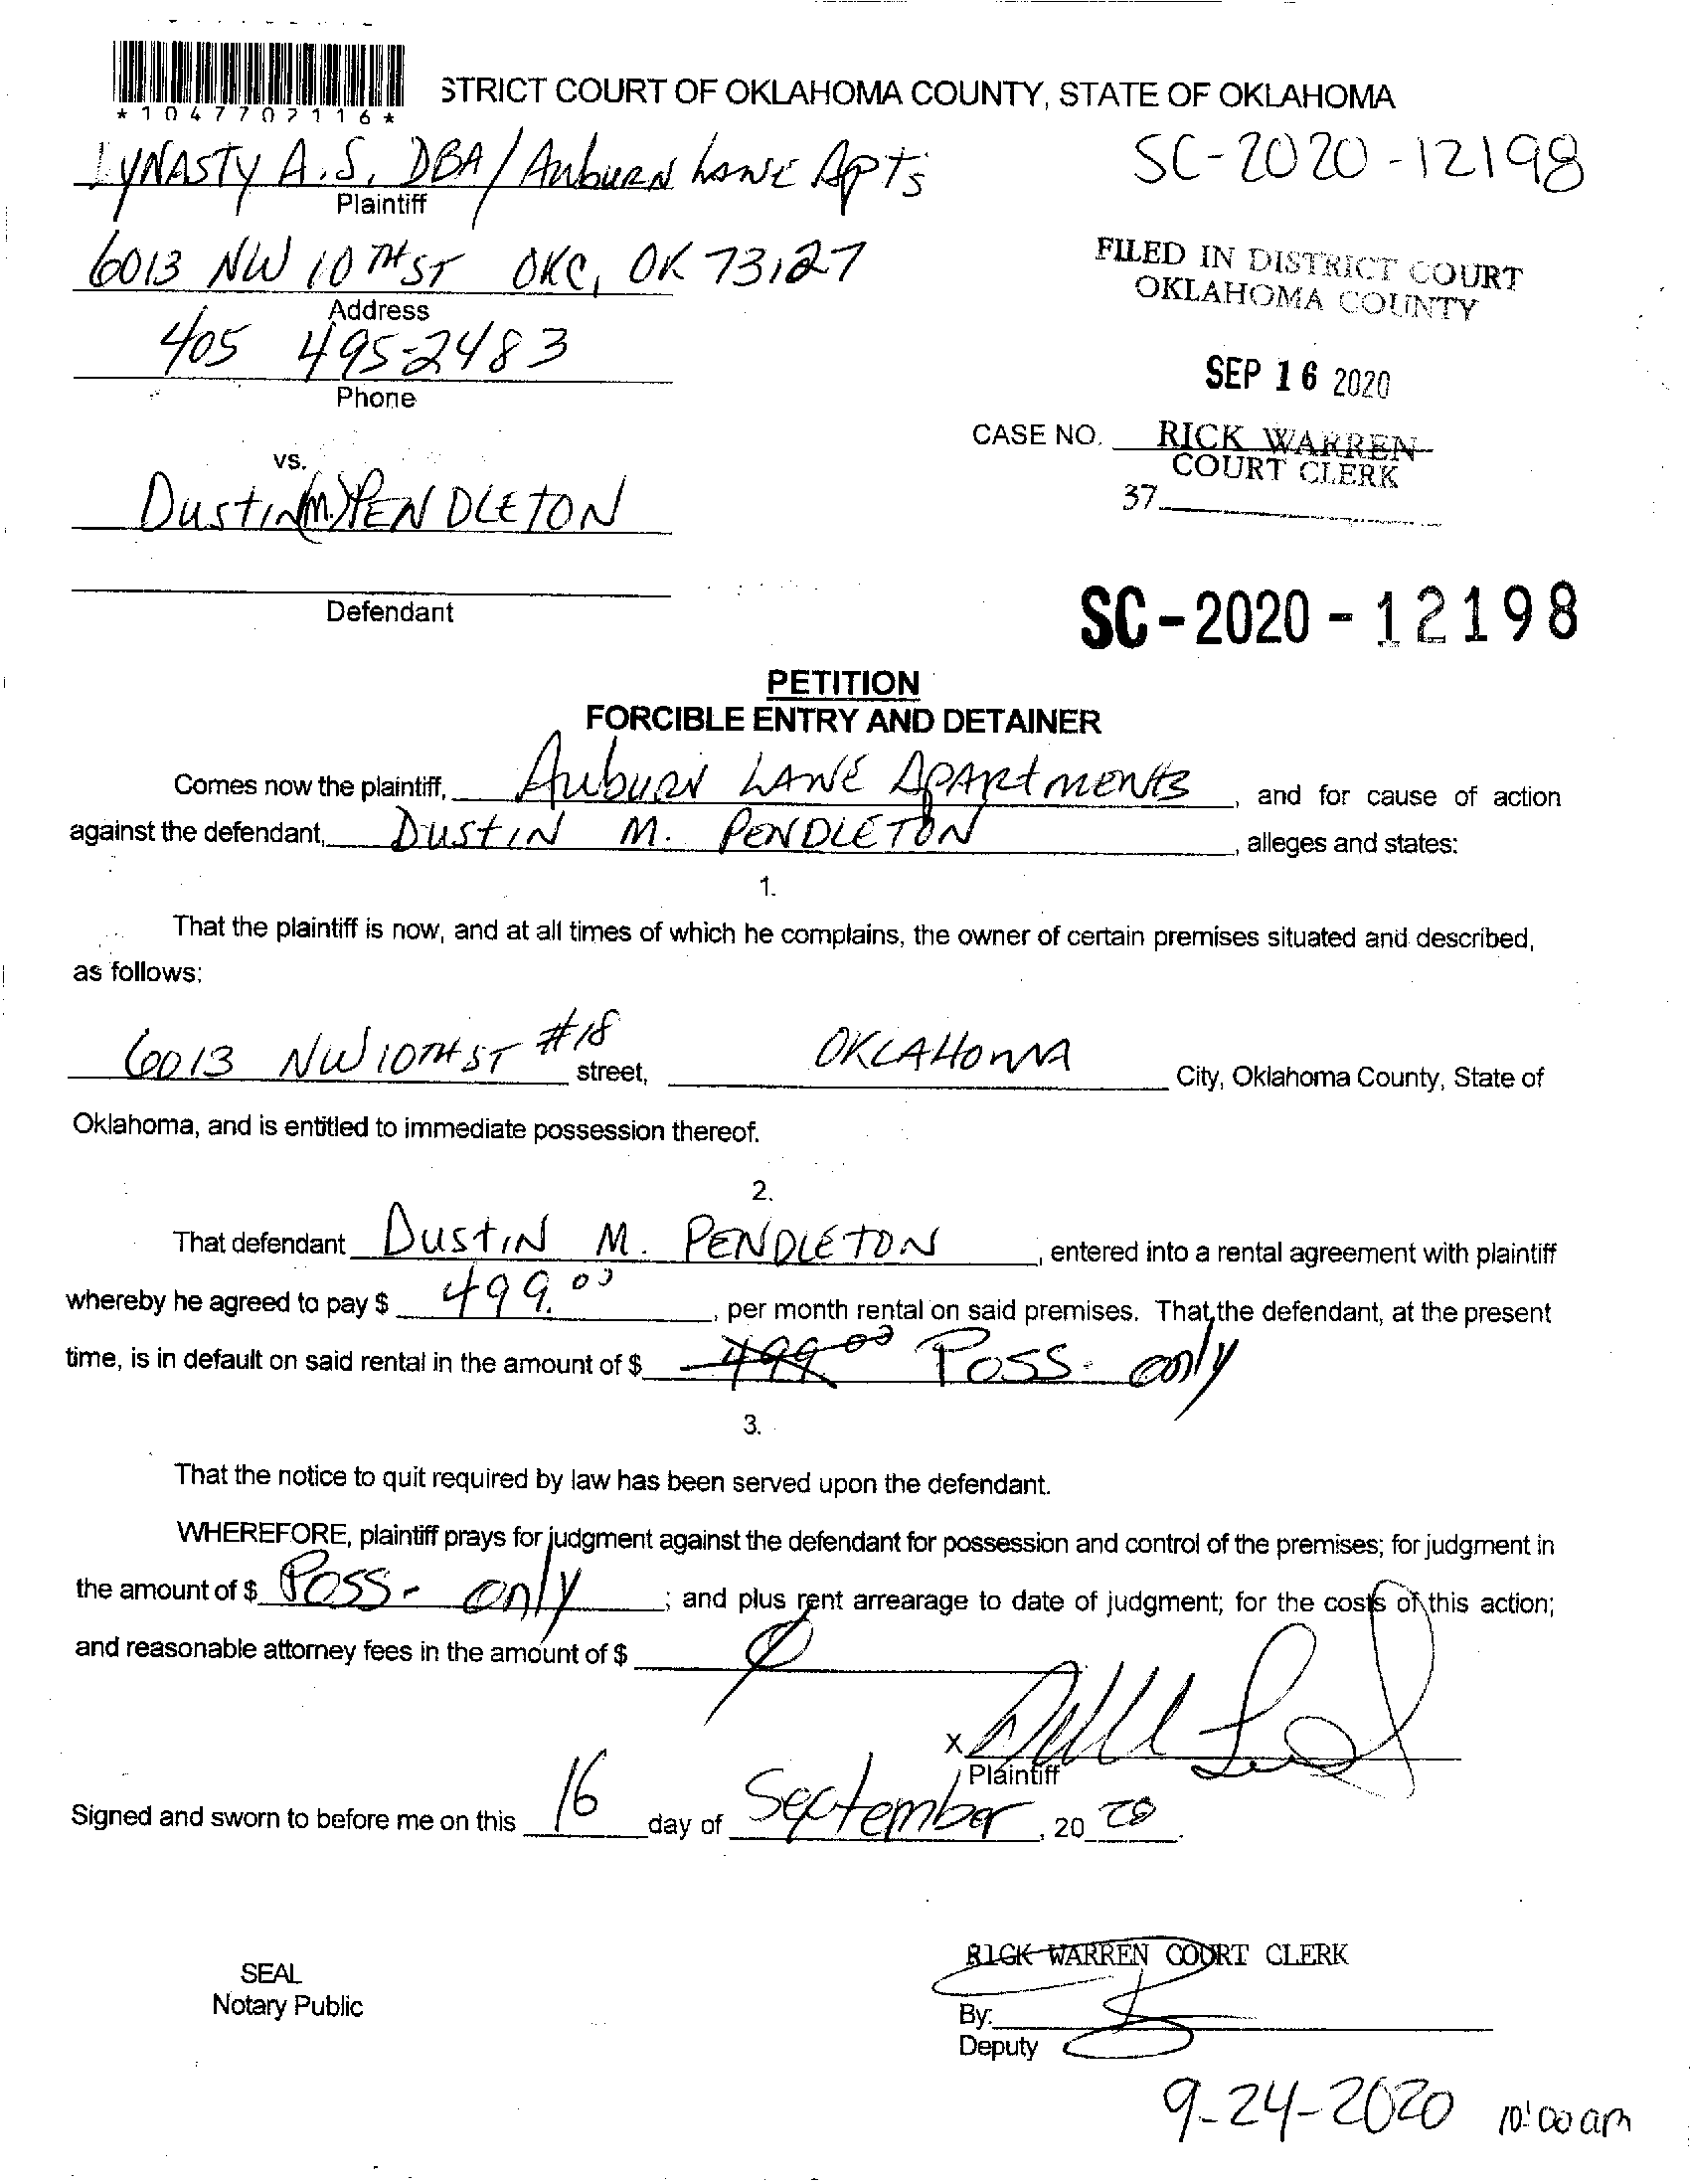 *1047702116*
STRICT COURT OF OKLAHOMA COUNTY, STATE OF OKLAHOMA
LYNASTY A.S. DBA/ Auburn Lane Apts
SC-2020-12198
Plaintiff
6013 NW 10TH ST OKC, OK 73127
FILED IN DISTRICT COURT
OKLAHOMA COUNTY
Address
405 495-2483
SEP 16 2020
Phone
CASE NO.
RICK WARREN
COURT CLERK
vs.
37
Dustin (M.) PENDLETON
Defendant
SC-2020-12198
PETITION
FORCIBLE ENTRY AND DETAINER
Comes now the plaintiff, Auburn LANE APARtMENts, and for cause of action
against the defendant, DUStIN M. PENDLETON, alleges and states:
1.
That the plaintiff is now, and at all times of which he complains, the owner of certain premises situated and described,
as follows:
6013 NW 10TH ST #18 street, OKLAHOMA City, Oklahoma County, State of
Oklahoma, and is entitled to immediate possession thereof.
2.
That defendant DUStIN M. PENDLETON, entered into a rental agreement with plaintiff
whereby he agreed to pay $ 499.00, per month rental on said premises. That, the defendant, at the present
time, is in default on said rental in the amount of $ 499.00 Poss. only
3.
That the notice to quit required by law has been served upon the defendant.
WHEREFORE, plaintiff prays for judgment against the defendant for possession and control of the premises; for judgment in
the amount of $ Poss. only; and plus rent arrearage to date of judgment; for the costs of this action;
and reasonable attorney fees in the amount of $
X
Plaintiff
Signed and sworn to before me on this 16 day of September, 20 20
RICK WARREN COURT CLERK
SEAL
Notary Public
By:
Deputy
9-24-2020 10:00 am